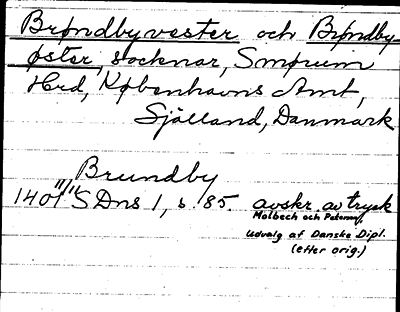 Brøndbyvester och Brøndby-
øster, socknar, Smørum
Hrd, Københavns Amt,
Sjölland, Danmark
Brundby
1401 11/11 SDns 1, s. 85. avskr. av tryck
Molbech och Petersen,
Udvalg af Danske Dipl.
(efter orig.)